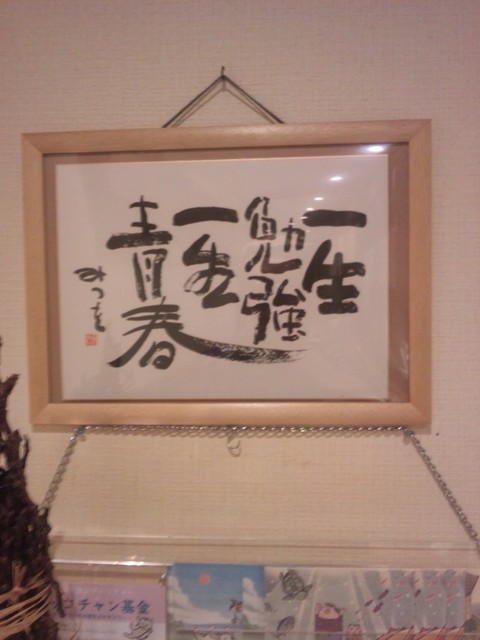 一生
勉強
一生
青春
みつを
コチャン基金